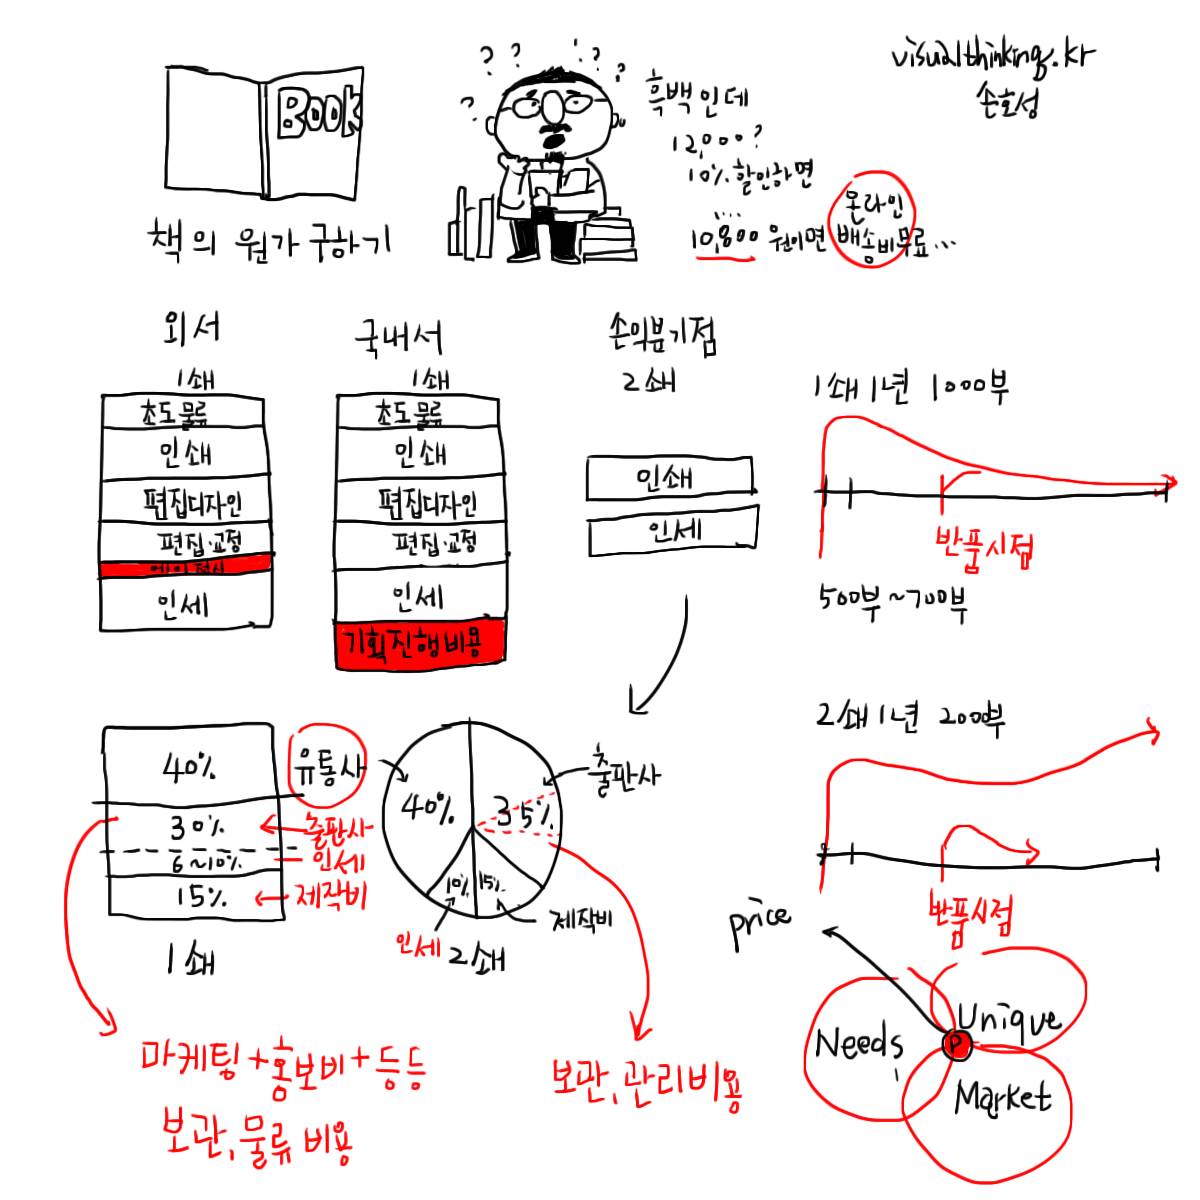 visualthinking.kr
손호성
BOOK
책의 원가 구하기
? ? ? ? ? ?
흑백인데
12,000?
10% 할인하면
....
10,800 원이면 온라인 배송비무료...
외서
1쇄
초도물류
인쇄
편집디자인
편집·교정
에이전시
인세
국내서
1쇄
초도물류
인쇄
편집디자인
편집·교정
인세
기획진행비용
손익분기점
2쇄
인쇄
인세
1쇄 1년 1000부
반품시점
500부~700부
2쇄 1년 200부
반품시점
40% 유통사
30% 출판사
6~10% 인세
15% 제작비
1쇄
40%
35%
출판사
10%
15%
인세
제작비
2쇄
마케팅+홍보비+등등
보관,물류 비용
보관,관리비용
price
Needs
Unique
P
Market